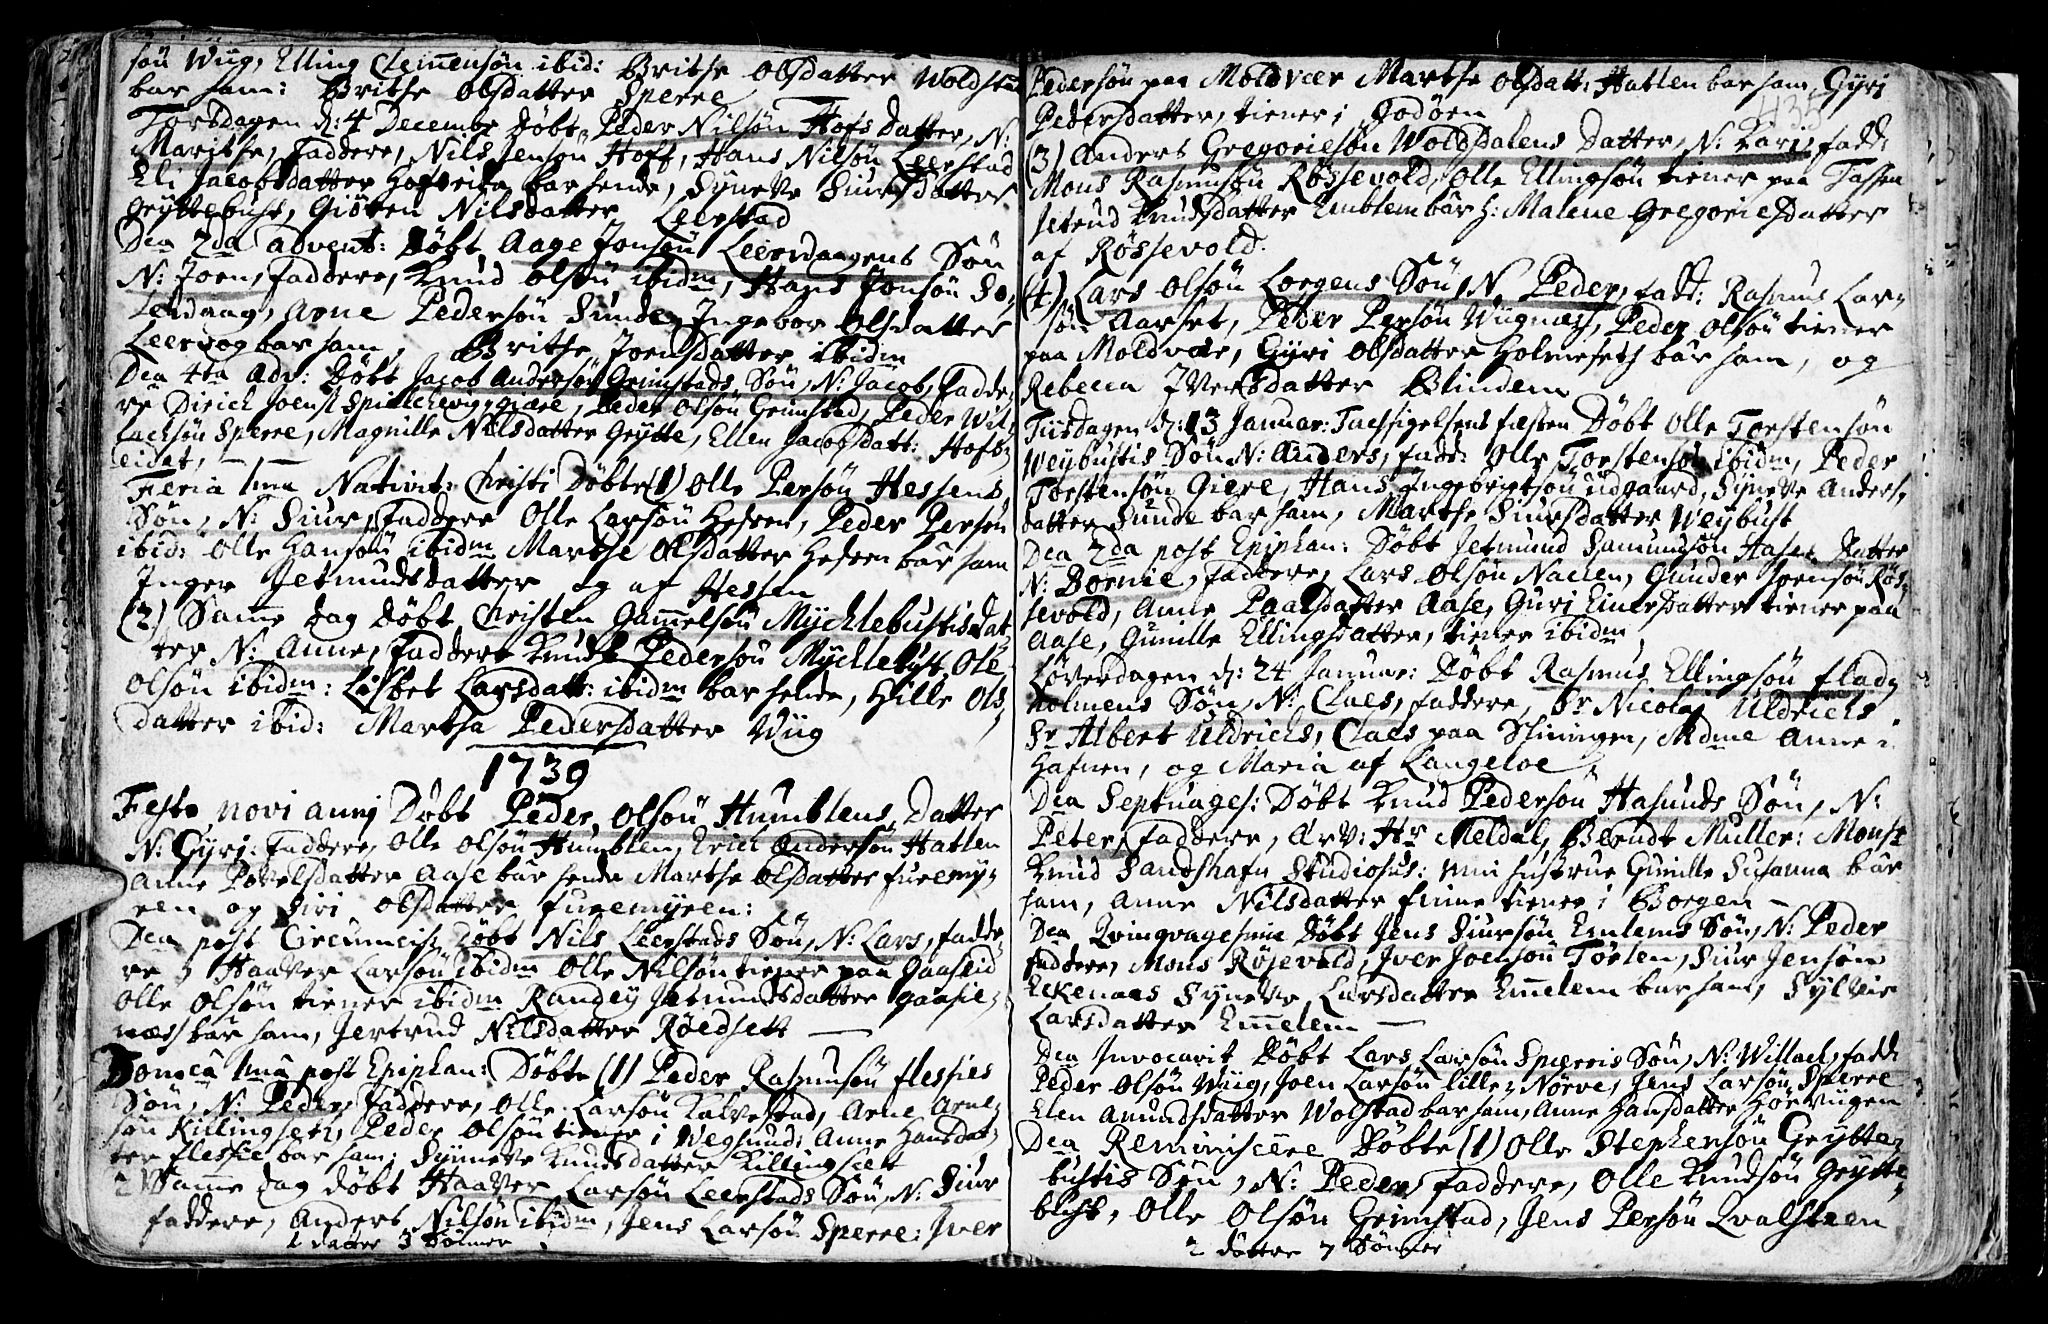 søn Wiig, Elling Clemensøn ibid: Brithe Olsdatter Woldstad
bar ham: Brithe Olsdatter Sperre
Torsdagen d: 4 Decembr Døbt Peder Nilsøn Hofs Datter, N:
Marithe, Faddere, Nils Jensøn Hoff, Hans Nilsøn Leerstad
Eli Jacobsdatter bar hende, Syneve Siursdatter
Gryttebust, Giøren Nilsdatter Leerstad
Den 2da Advent: Døbt Aage Jonsøn Leervaagens Søn
N: Joen, Faddere, Knud Olsøn ibidm, Hans Jonsøn So,
levaag, Arne Pedersøn Sunde, Ingebor Olsdatter
Leervog bar ham, Brithe Joensdatter ibidm
Den 4ta Adv: Døbt Jacob Andersøn Grimstads Søn, N: Jacob, Fadde,
re Dirich Joens. Spielchevig, giære, Peder Olsøn Grimstad, Peder Wil,
lachsøn Sperre, Magnille Nilsdatter Grytte, Ellen Jacobsdatt: Hofs,
eidet,
Feria 1ma Nativit: Christi Døbte (1) Olle Persøn Hessens
Søn, N: Siur, Faddere Olle Larsøn Hessen, Peder Persøn
ibid: Olle Hansøn ibidm Marthe Olsdatter Hessen bar ham
Inger Jetmundsdatter og af Hessen
(2) Same dag døbt Christen Gamelsøn Mychlebustis Dat,
ter N: Anne, Faddere Knud Pedersøn Mychlebust, Ole
Olsøn ibidm: Lisbet Larsdatt: ibidm bar hende, Hille Ols,
datter ibid: Martha Pedersdatter Wiig
1739
Festo novi anni Døbt Peder Olsøn Humblens Datter
N: Gyri: Faddere, Olle Olsøn Humblen, Erich Andersøn Hatlen
Anne Povelsdatter Aase bar hende Marthe Olsdatter Furemy,
ren og Siri Olsdatter Furemyren:
Den post Circumcis: Døbt Nils Leerstads Søn, N: Lars, fadde,
re, Haaver Larsøn ibidm Olle Nilsøn tiener paa Gaaseid
Olle Olsøn tiener ibidm Randey Jetmundsdatter Gaasie,
næs bar ham, Jertrud Nilsdatter Røedsett
Domca 1ma post Epiphan: Døbte (1) Peder Rasmusøn Flessies
Søn, N: Peder, Faddere, Olle Larsøn Kalvestad, Arne Arne,
søn Killingset, Peder Olsøn tiener i Wegsund: Anne Hansdat,
ter Flessie bar ham: Synneve Knudsdatter Killingset
2 Same dag døbt Haaver Larsøn Leerstads Søn, N: Siur
faddere, Anders Nilsøn ibidm, Jens Larsøn Sperre: Iver
1 datter 3 Sønner
Pedersøn paa Moldvær Marthe Olsdatt: Hatlen bar ham, Gyri
Pedersdatter, tiener i Godøen
(3) Anders Gregoriesøn Woldsdalens Datter, N: Kari, fadd:
Mons Rasmusøn Røssevold, Olle Ellingsøn tiener paa Tassen
Jetrud Knudsdatter Emblem bar h: Malene Gregoriesdatter
af Røssevold.
(4) Lars Olsøn Lorgens Søn, N Peder, fadd: Rasmus Lar,
søn Aarset, Peder Persøn Wiignæs, Peder Olsøn tiener
paa Moldvær, Gyri Olsdatter Holmeseth bar ham, og
Rebecca Iversdatter Blindem
Tiisdagen d: 13 Januar: Tachsigelsens fæsten Døbt Olle Torstensøn
Weybustis Søn N: Anders, fadd: Olle Torstensøn ibidm, Peder
Torstensøn Giere, Hans Udgaard, Syneve Anders,
datter Sunde bar ham, Marthe Siursdatter Weybust
Den 2da post Epiphan: Døbt Jetmund Samunsøn Aases Datter
N: Bornie, Faddere, Lars Olsøn Nacken, Gunder Joensøn Røs,
sevold, Anne Paalsdatter Aase, Guri Einersdatter tiener paa
Aase, Gunille Ellingsdatter, tiener ibidm
Løverdagen d: 24 Januar: Døbt Rasmus Ellingsøn Flad,
holmens Søn, N: Claes, faddere, Sr Nicolay Uldrichs
Sr Albert Uldrichs, Claes paa Skiningen, Mdme Anne i
Hafnen, og Maria af Langeloe
Den Septuages: Døbt Knud Pedersøn Hasunds Søn, N:
Peter, Faddere, Ærv: Hr Meldal, Berndt Muller: Monsr
Knud Sandshafn Studiosus: min hustrue Gunille Susanna bar
ham, Anne Nilsdatter Finne tiener i Borgen
Den Qvinqvagesime Døbt Jens Siursøn Emlems Søn, N: Peder
faddere, Mons Røsevold, Iver Joensøn Torlen, Siur Jensøn
Eckenaes Syneve Larsdatter Emelem bar ham, Sylvie
Larsdatter Emelem
Den Invocavit Døbt Lars Larsøn Sperris Søn, N: Willack, fadd:
Peder Olsøn Wiig, Joen Larsøn lille Nørve, Jens Larsøn Sperre
Elen Amundsdatter Wolstad bar ham, Anne Hansdatter Hørviigen
Den Reminiscere Døbte (1) Olle Stephensøn Grytte,
bustis Søn, N: Peder, Faddere, Olle Knudsøn Grytte,
bust, Olle Olsøn Grimstad, Jens Persøn Qvalsteen
2 døttre 7 Sønner